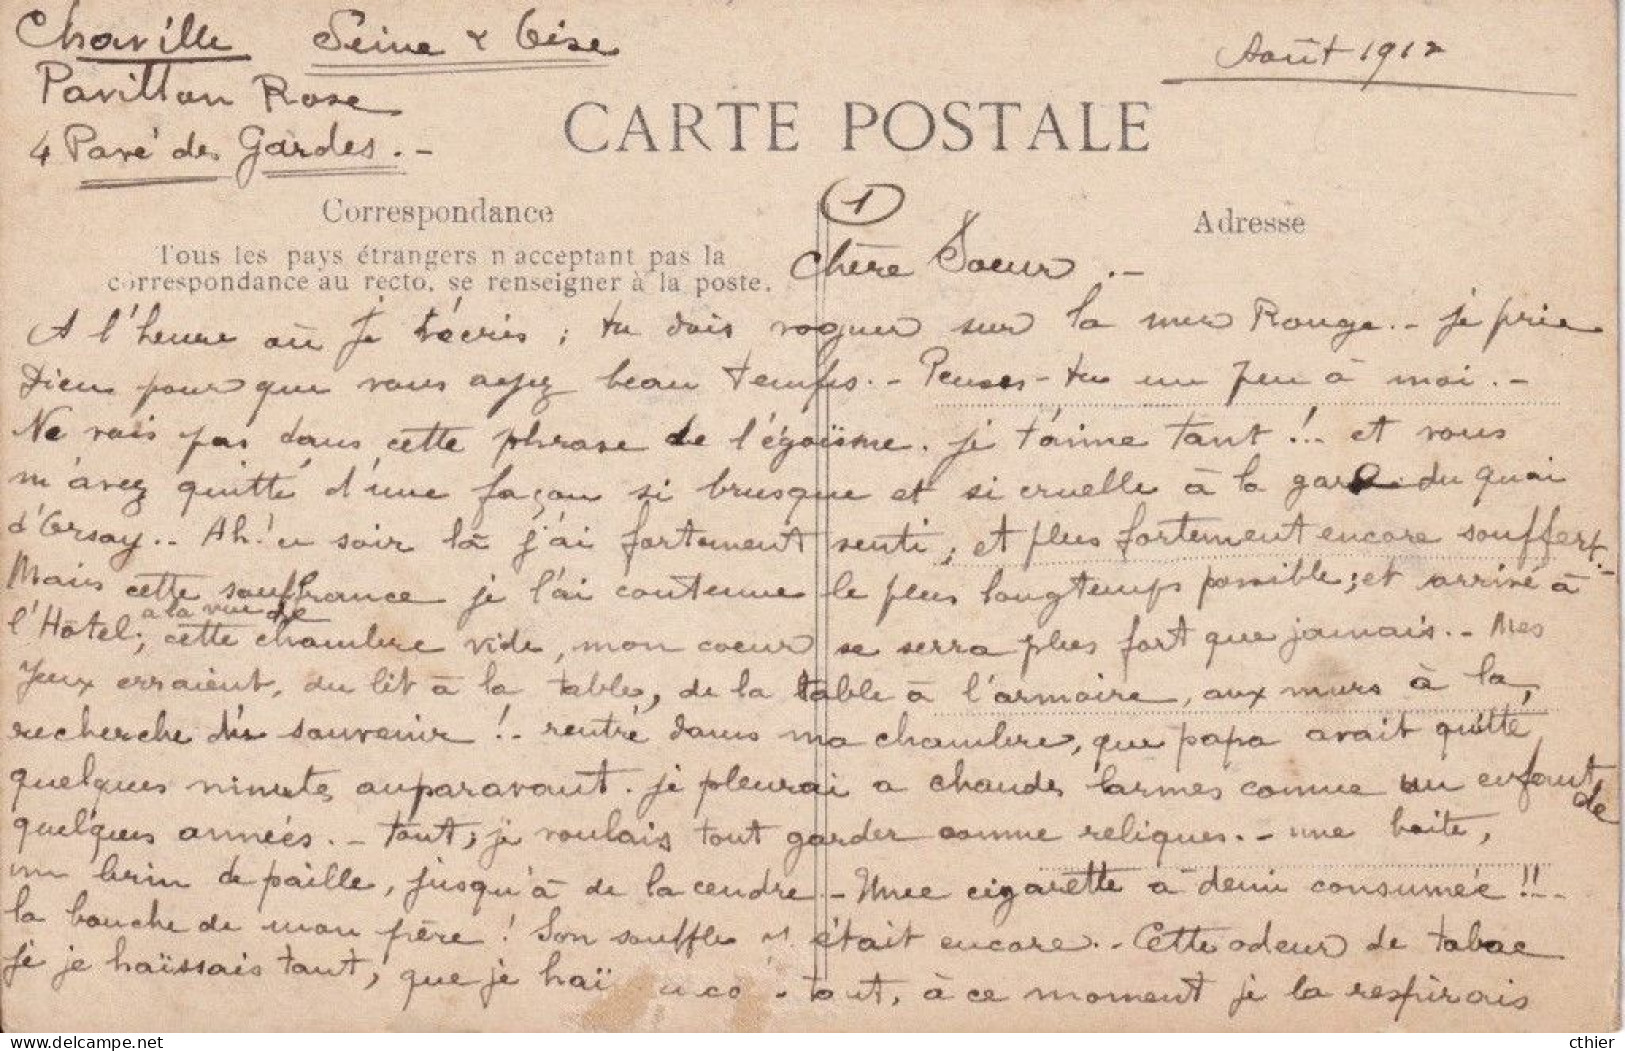 Chaville Seine & Oise
Août 1912
Pavillon Rose
4 Pavé des Gardes. -
CARTE POSTALE
Correspondance
1
Adresse
Tous les pays étrangers n'acceptent pas la
correspondance au recto, se renseigner à la poste.
Chère Soeur . -
A l'heure où je t'écris ; tu dois voguer sur la mer Rouge. - je prie
Dieu pour que vous ayez beau temps. - Penses-tu un peu à moi. -
Ne vois pas dans cette phrase de l'égoïsme. je t'aime tant !.. et vous
m'avez quitté d'une façon si brusque et si cruelle à la gare du quai
d'Orsay.. Ah! ce soir là j'ai fortement senti, et plus fortement encore souffert. -
Mais cette souffrance je l'ai contenue le plus longtemps possible ; et arrivé à
l'Hôtel ; à la vue de cette chambre vide, mon coeur se serra plus fort que jamais. - Mes
yeux erraient, du lit à la table, de la table à l'armoire, aux murs à la
recherche d'un souvenir !.. rentré dans ma chambre, que papa avait quitté
quelques minutes auparavant. je pleurai a chaudes larmes comme un enfant de
quelques années. - Tout, je voulais tout garder comme reliques. - une boite,
un brin de paille, jusqu'à de la cendre - Une cigarette à demi consumée !!..
la bouche de mon père ! Son souffle y était encore.. Cette odeur de tabac
je haïssais tant, que je haï tout, à ce moment je la respirais
cthier